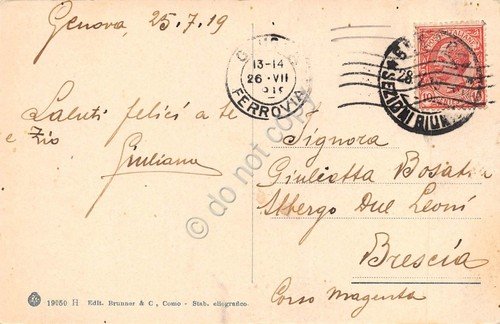 Genova, 25.7.19
13-14
26·VII
FERROVIA
28
Saluti felici a te
e zio
Giuliana
Signora
Giulietta Bosatta
Albergo Due Leoni
Brescia
Corso Magenta
do not copy
19150 H Edit. Brunner & C., Como - Stab. eliografico.